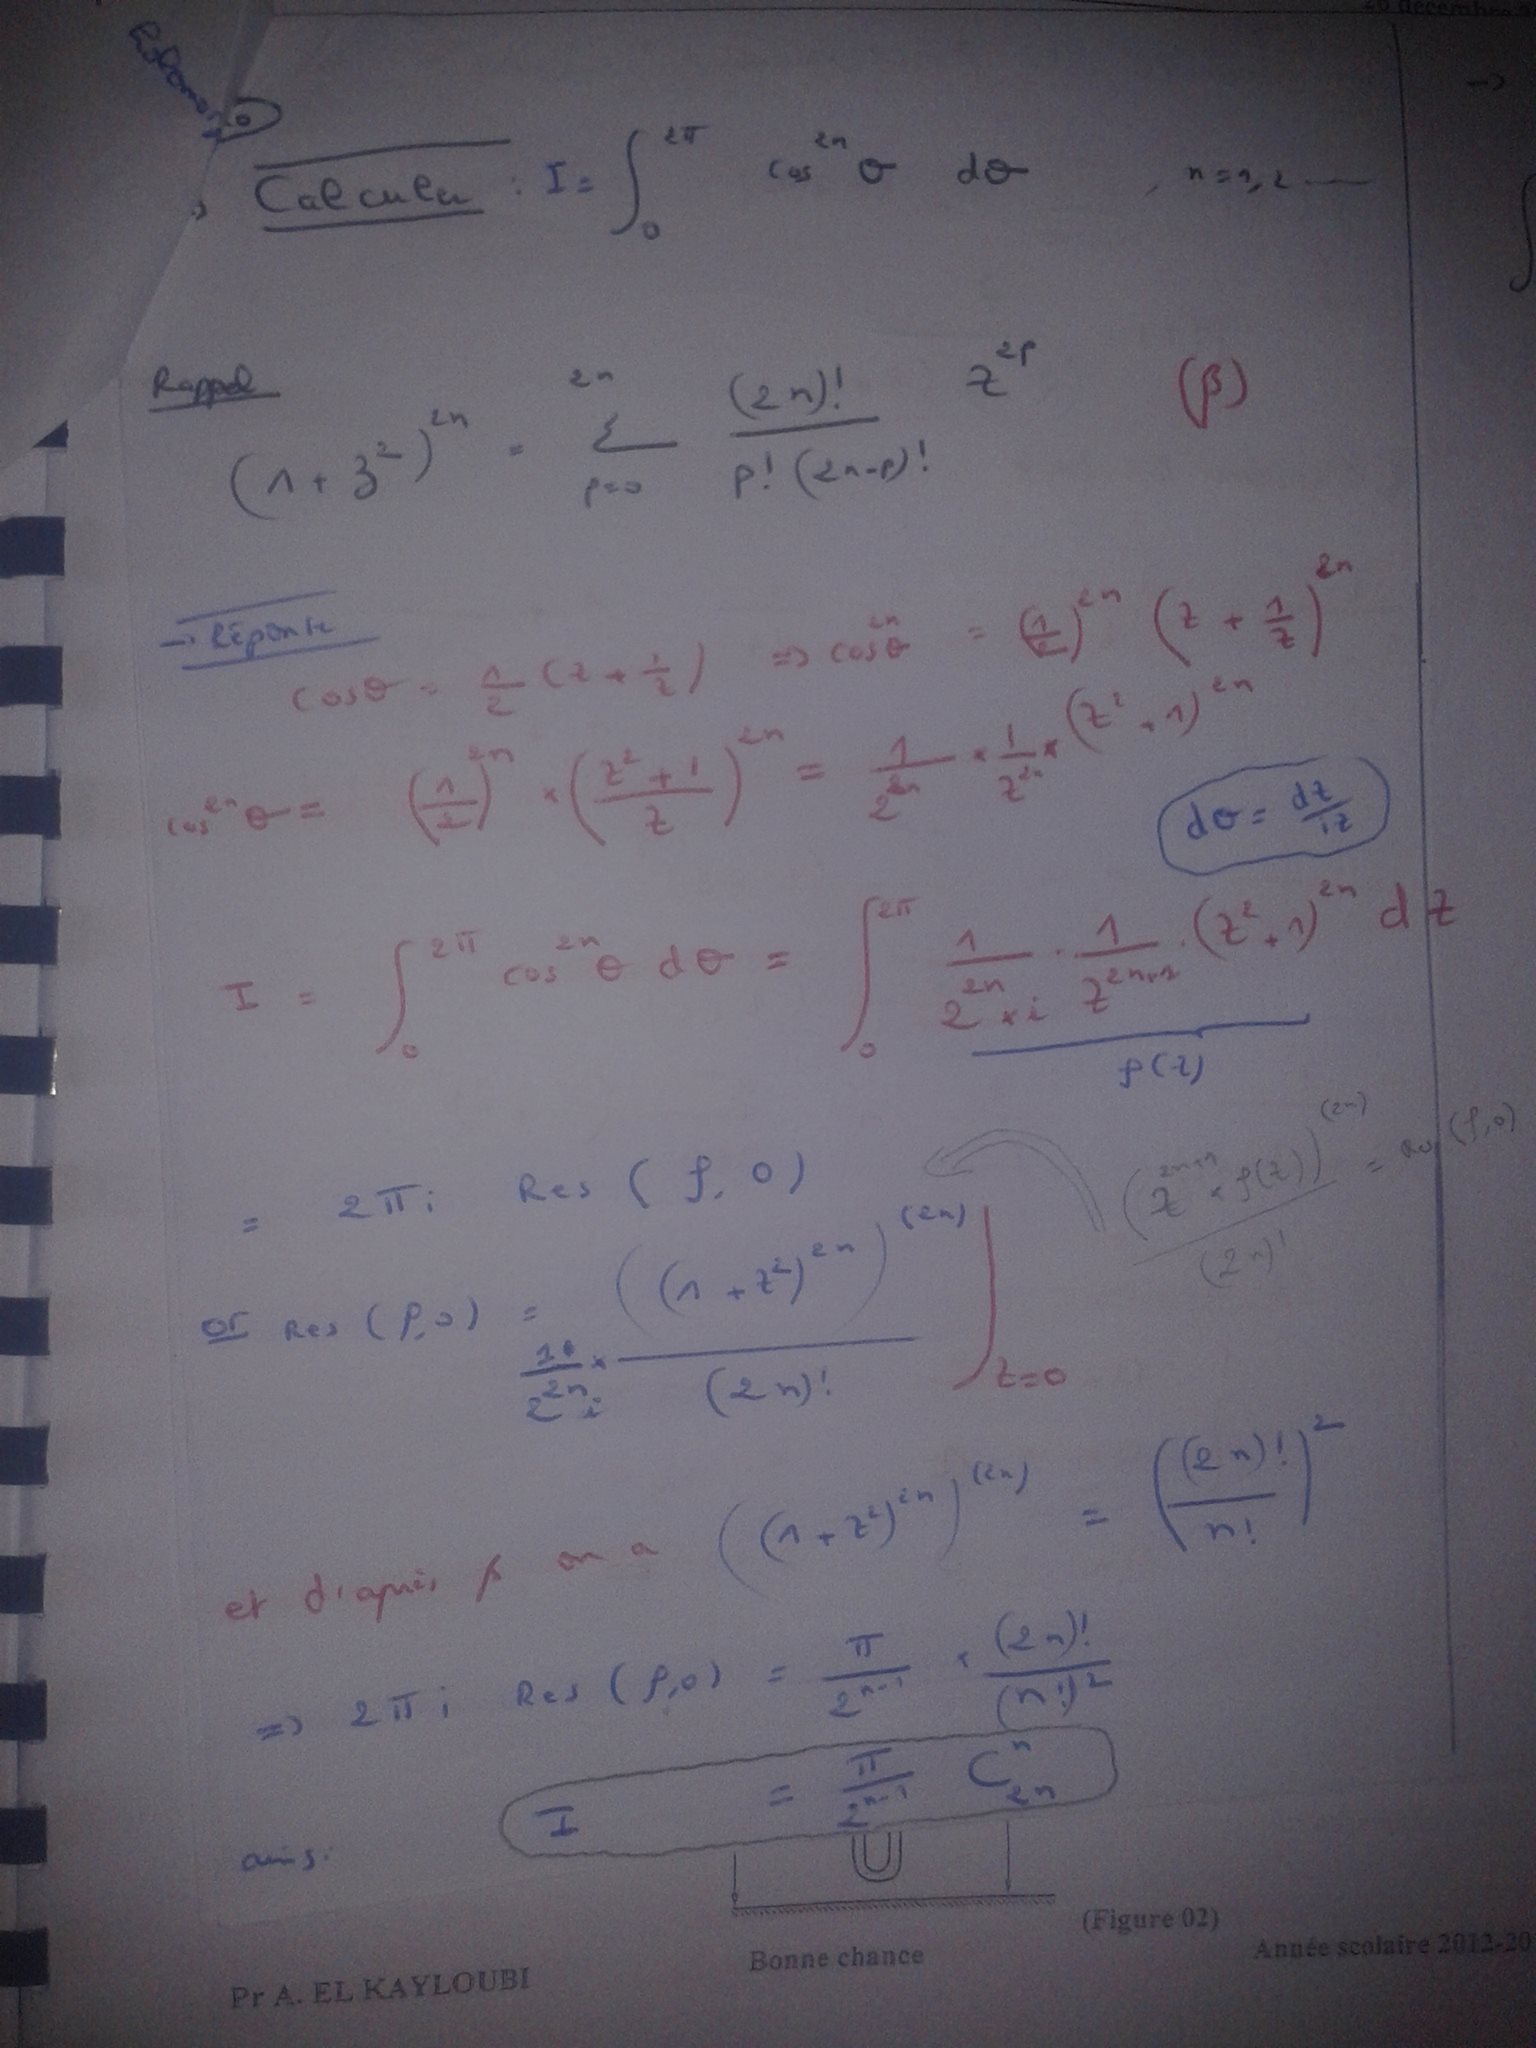 26 décembre
Calculer : I = ∫₀^{2π} cos^{2n} θ dθ , n = 1, 2 ——
Rappel
(1 + z²)^{2n} = Σ_{p=0}^{2n} (2n)! / (p! (2n-p)!) z^{2p} (β)
→ Réponse
cos θ = 1/2 (z + 1/z) => cos^{2n} θ = (1/2)^{2n} (z + 1/z)^{2n}
cos^{2n} θ = (1/2)^{2n} × ((z² + 1)/z)^{2n} = 1/2^{2n} × 1/z^{2n} × (z² + 1)^{2n}
dθ = dz/iz
I = ∫₀^{2π} cos^{2n} θ dθ = ∫₀^{2π} 1/(2^{2n} × i) · 1/z^{2n+1} · (z² + 1)^{2n} dz
f(z)
= 2πi Res (f, 0)
(z^{2n+1} × f(z))^{(2n)} / (2n)! = Res (f, 0)
or Res (f, 0) = 1/(2^{2n} i) × ((1 + z²)^{2n})^{(2n)} / (2n)! |_{z=0}
et d'après β on a ((1 + z²)^{2n})^{(2n)} = ((2n)! / n!)²
=> 2πi Res (f, 0) = π/2^{n-1} × (2n)! / (n!)²
ainsi I = π/2^{n-1} C_{2n}^{n}
(Figure 02)
Pr A. EL KAYLOUBI Bonne chance Année scolaire 2012-20